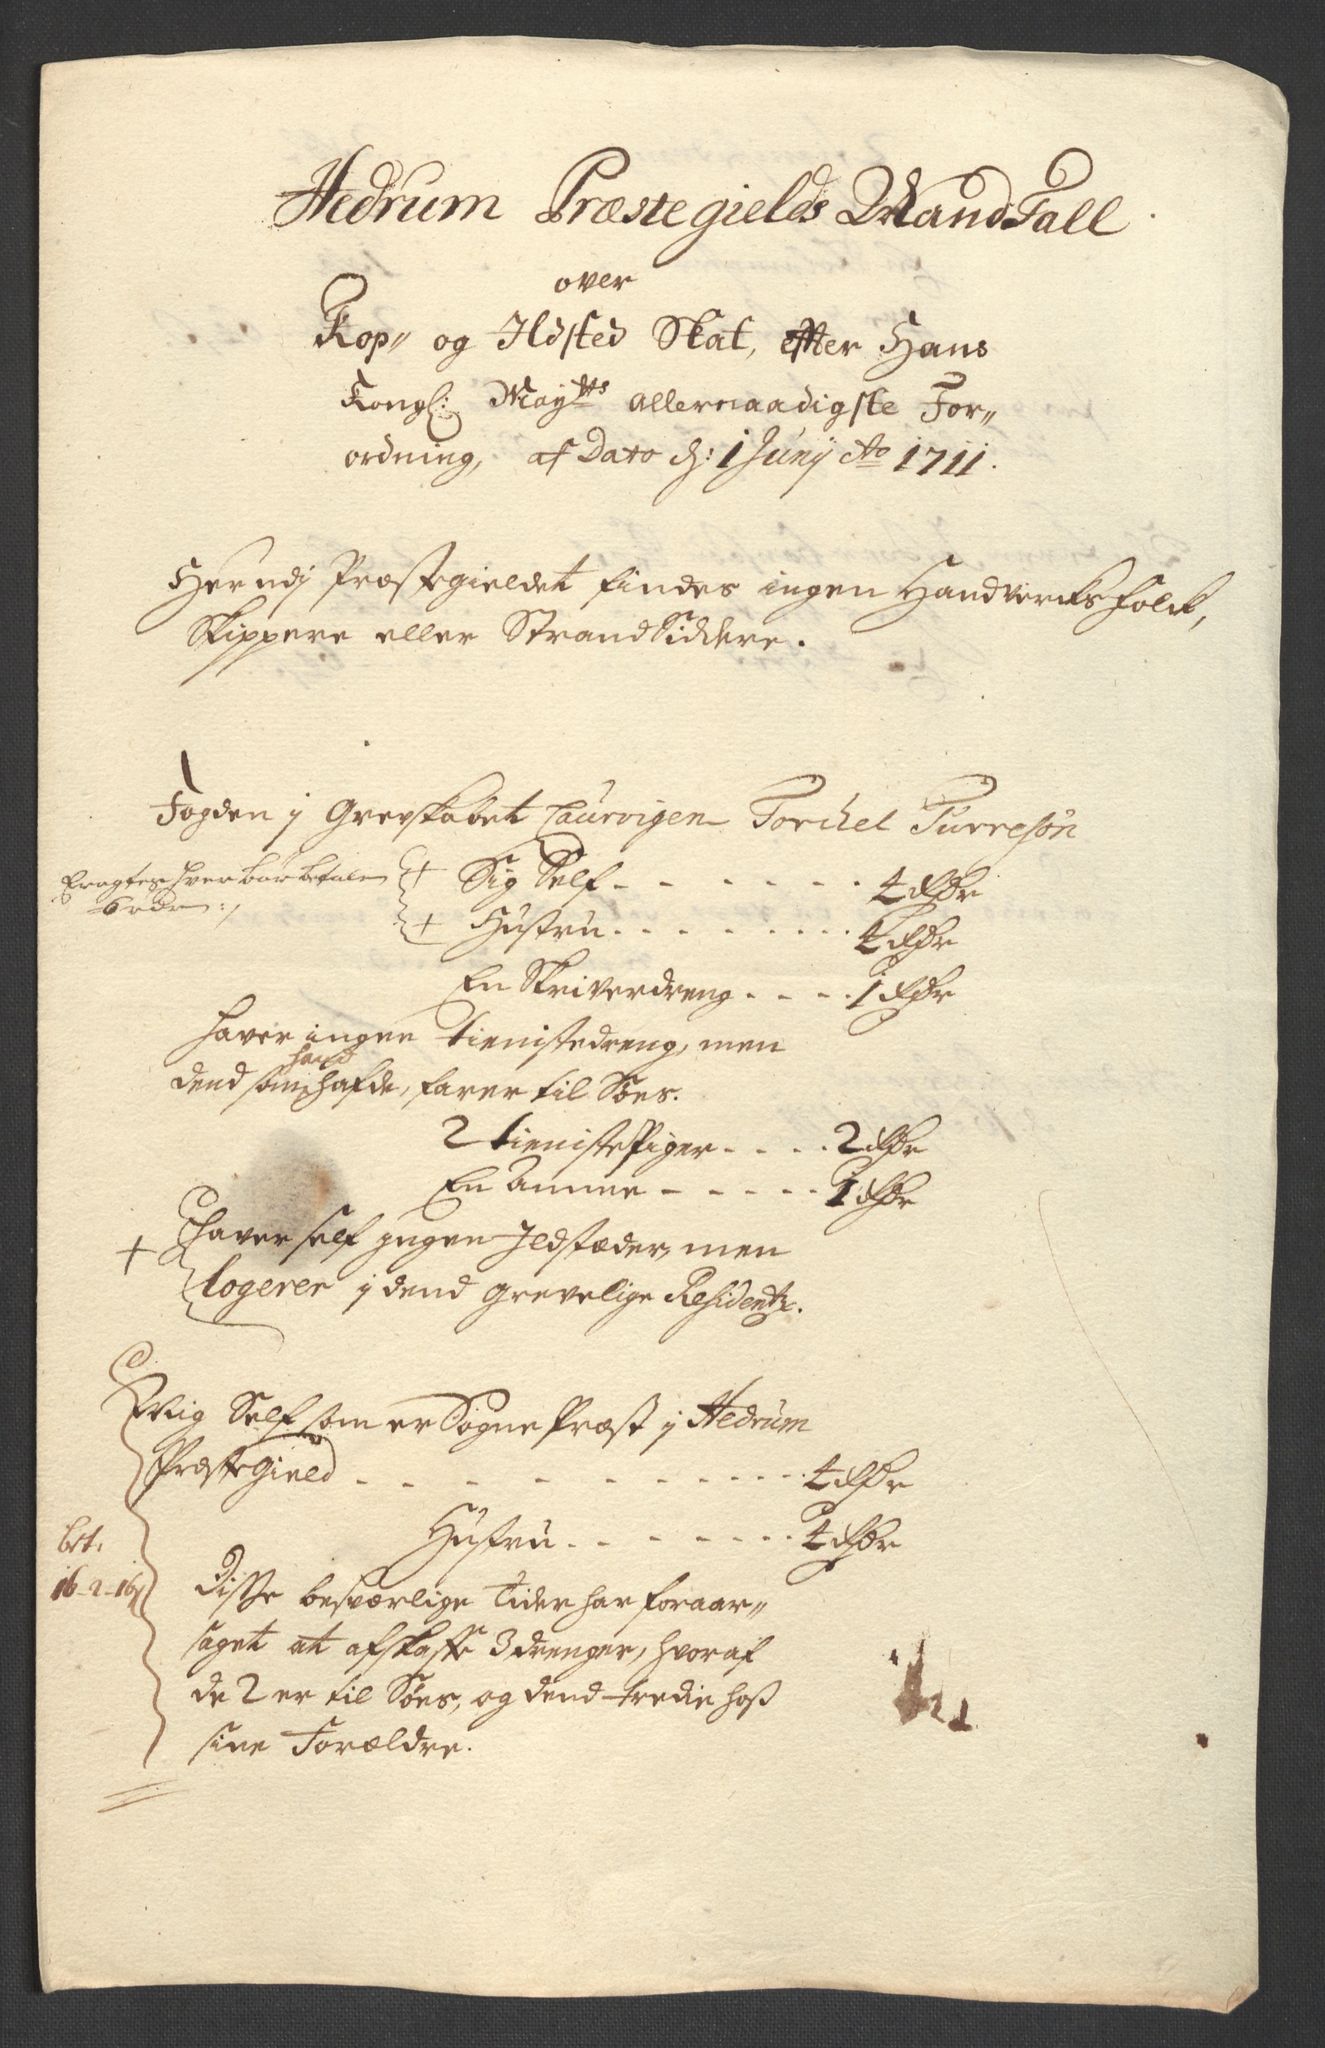 Hedrum Præstegields MandTall
over
Kop,, og Ildsted Skat, effter Hans
Kongl: Mayts allernaadigste For,,
ordning, af Dato d: 1 Junij Ao 1711.
Herudj Præstegieldet findes ingen Handtverchs folck,
Skippere eller StrandSiddere.
Fogden j Grevskabet Laurvigen Torchel Turresøn
Eragtes hver bør betale
6 rdr:/
+ Sig Self - - - - - - - 4 Rdr
+ Hustru - - - - - - - 4 Rdr
En Skriverdreng - - - - 1 Rdr
haver ingen tienistedreng, men
hand
dend som hafde, farer til Søes.
2 tienistePiger - - - - 2 Rdr
En Amme - - - - - 1 Rdr
haver self jngen Jldstæder, men
+
logerer j dend Grevelige Residentz.
Mig Self som er SognePræst j Hedrum
PræsteGield - - - - - - - - - - 4 Rdr
Hustru - - - - - - - 4 Rdr
bet.
16-2-16
Disse besværlige tider har foraar,,
saget at afskaffe 3 drenger, hvoraf
de 2 er til Søes, og dend tredie hoß
sine Forældre.